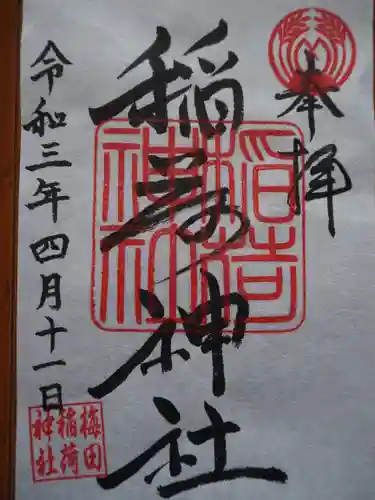 奉拝
稲荷神社
稲荷神社
令和三年四月十一日
梅田
稲荷
神社